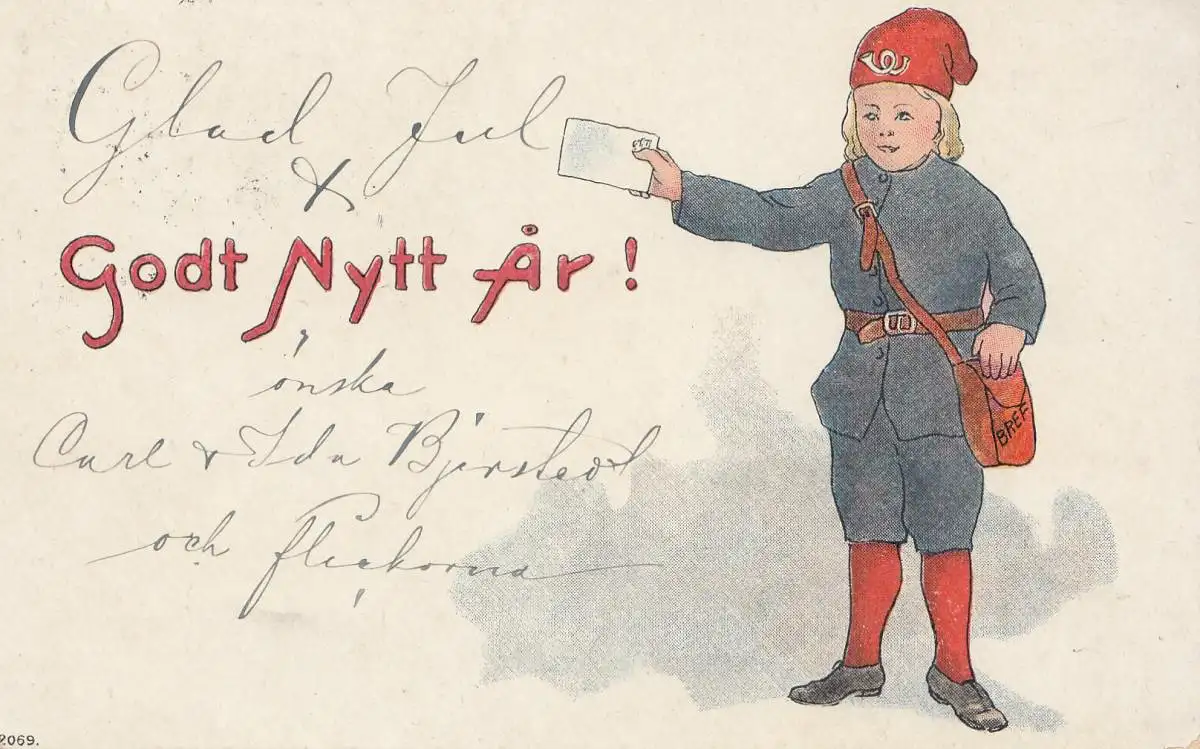 Glad Jul
&
Godt Nytt År!
önska
Carl & Ida Bjerstedt
och flickorna
BREF
2069.